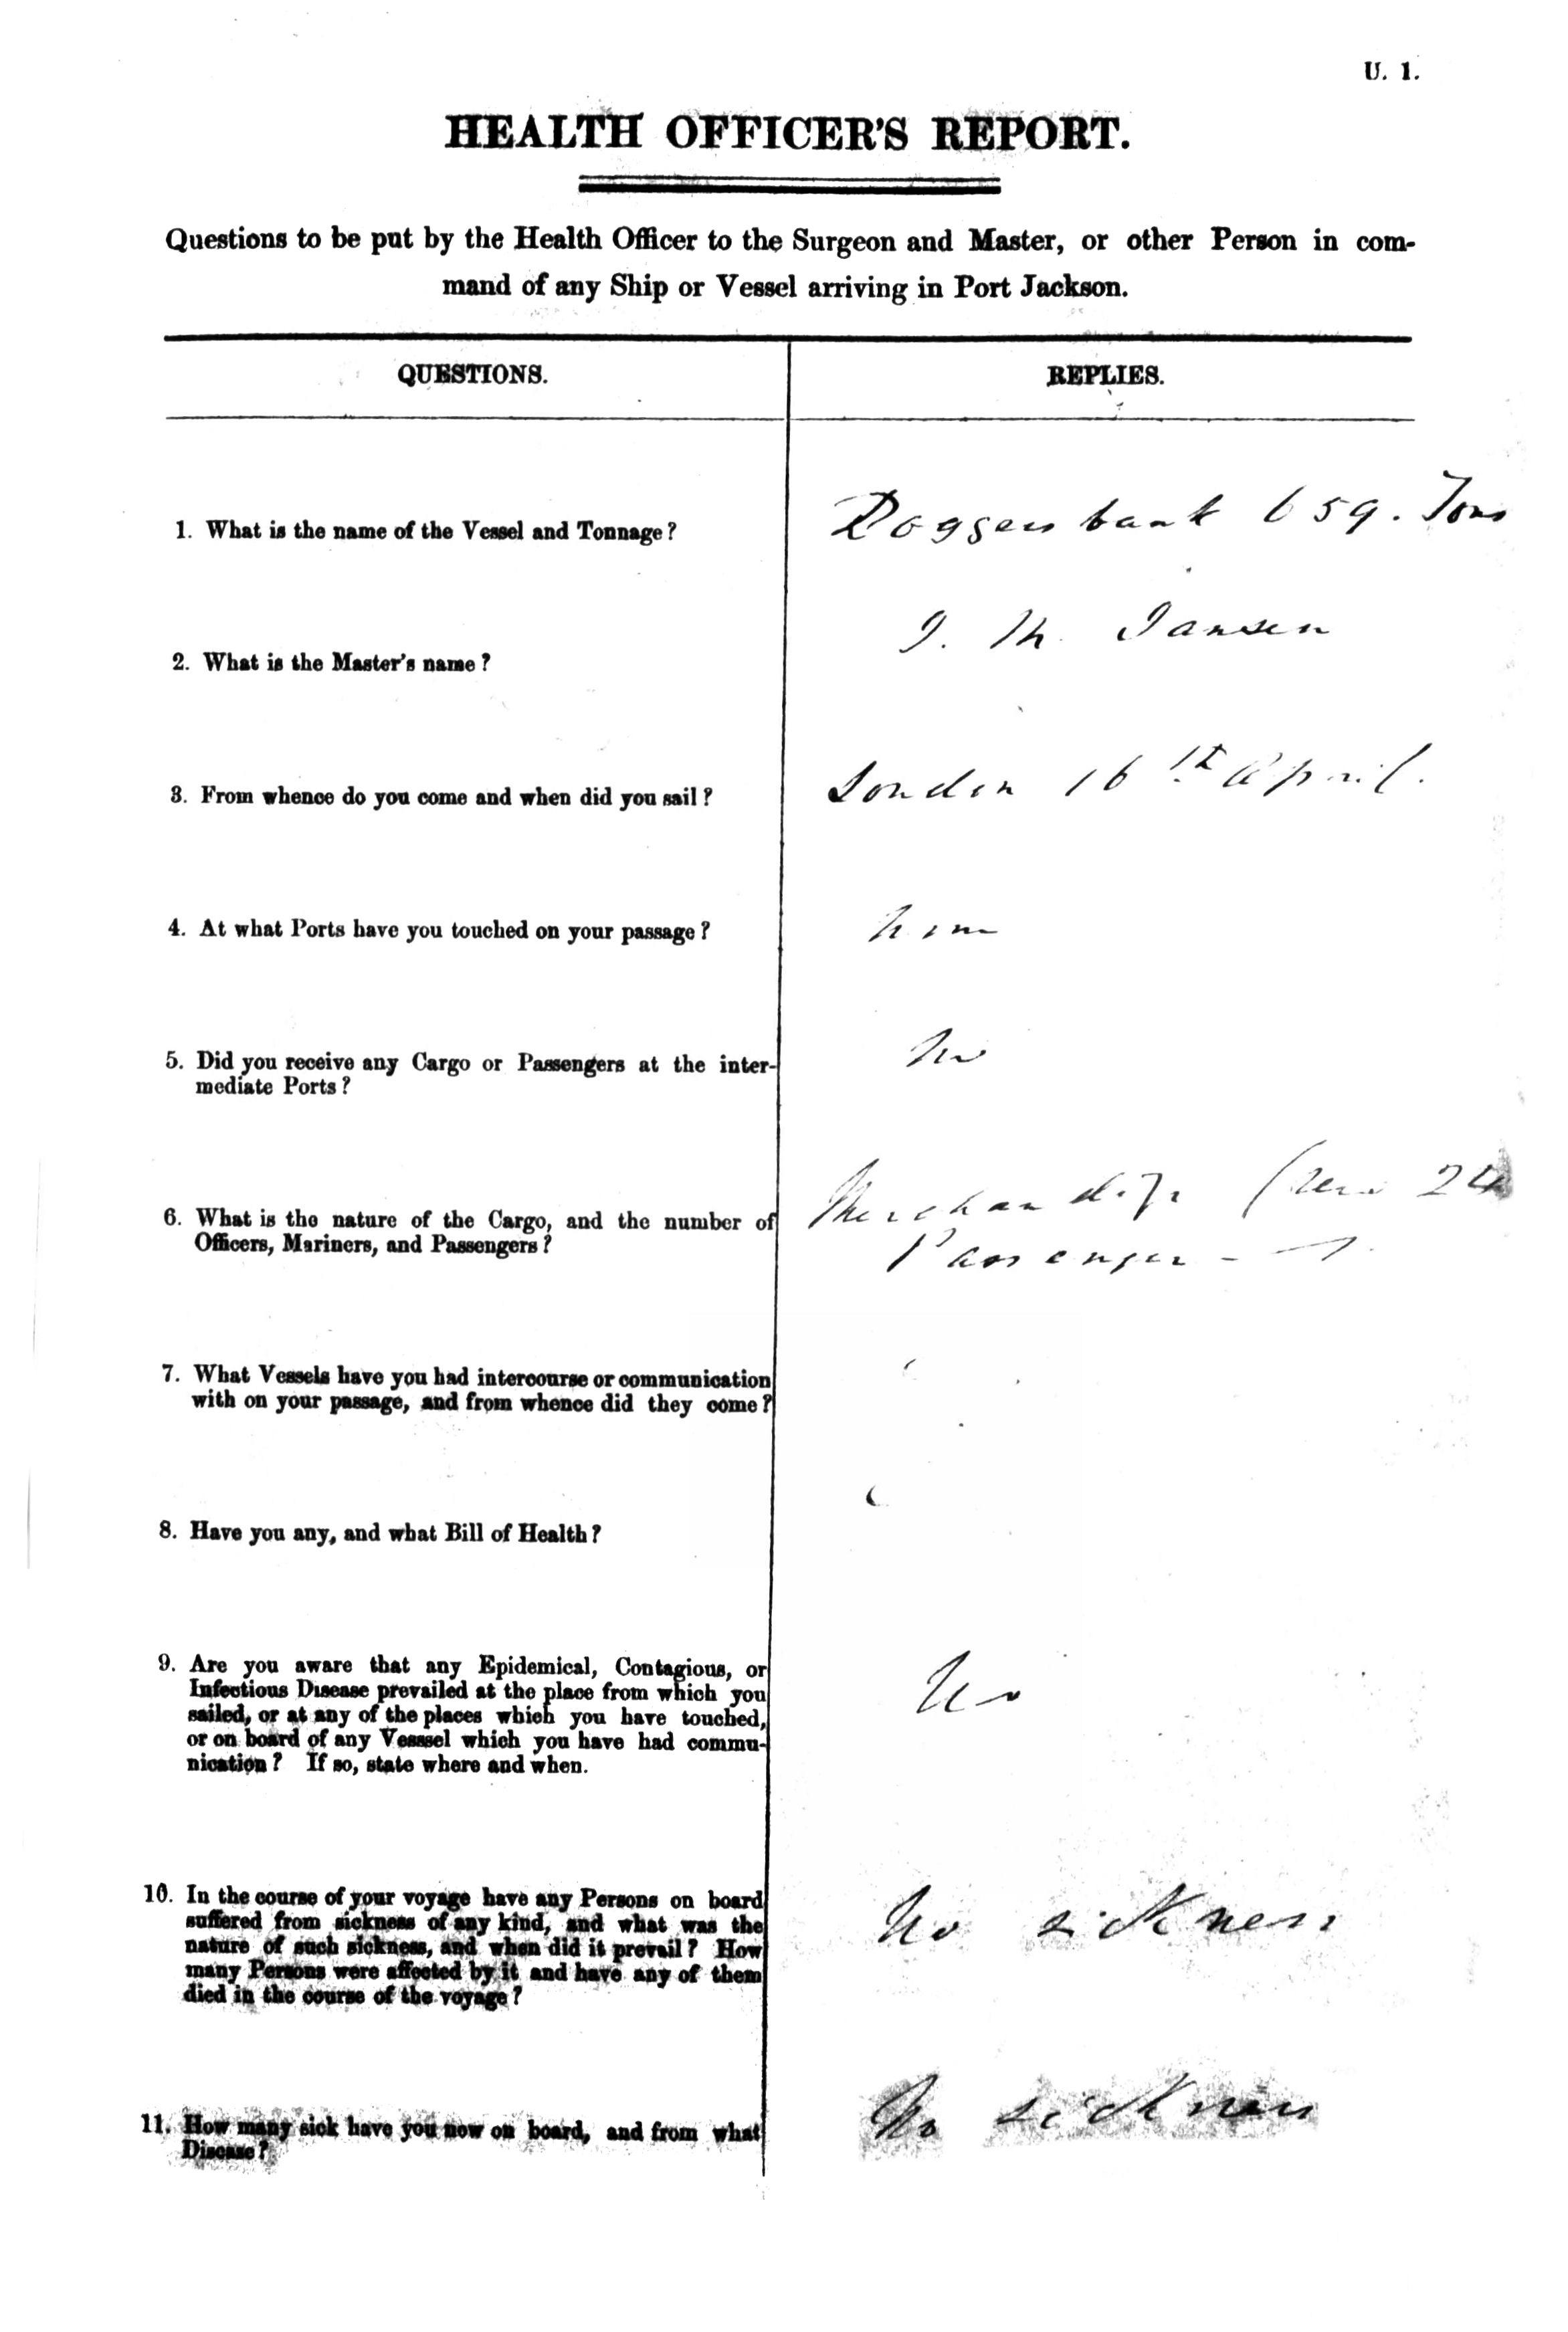 U. 1.
HEALTH OFFICER'S REPORT.
Questions to be put by the Health Officer to the Surgeon and Master, or other Person in com-
mand of any Ship or Vessel arriving in Port Jackson.
QUESTIONS.
REPLIES.
1. What is the name of the Vessel and Tonnage?
Doggersbank 659. Tons
2. What is the Master's name?
J. M. Jansen
3. From whence do you come and when did you sail?
London 16th April.
4. At what Ports have you touched on your passage?
None
5. Did you receive any Cargo or Passengers at the inter-
mediate Ports?
No
6. What is the nature of the Cargo, and the number of
Officers, Mariners, and Passengers?
Merchandise Crew 24
Passenger - 7.
7. What Vessels have you had intercourse or communication
with on your passage, and from whence did they come?
8. Have you any, and what Bill of Health?
9. Are you aware that any Epidemical, Contagious, or
Infectious Disease prevailed at the place from which you
sailed, or at any of the places which you have touched,
or on board of any Vesssel which you have had commu-
nication? If so, state where and when.
No
10. In the course of your voyage have any Persons on board
suffered from sickness of any kind, and what was the
nature of such sickness, and when did it prevail? How
many Persons were affected by it and have any of them
died in the course of the voyage?
No sickness
11. How many sick have you now on board, and from what
Disease?
No sickness